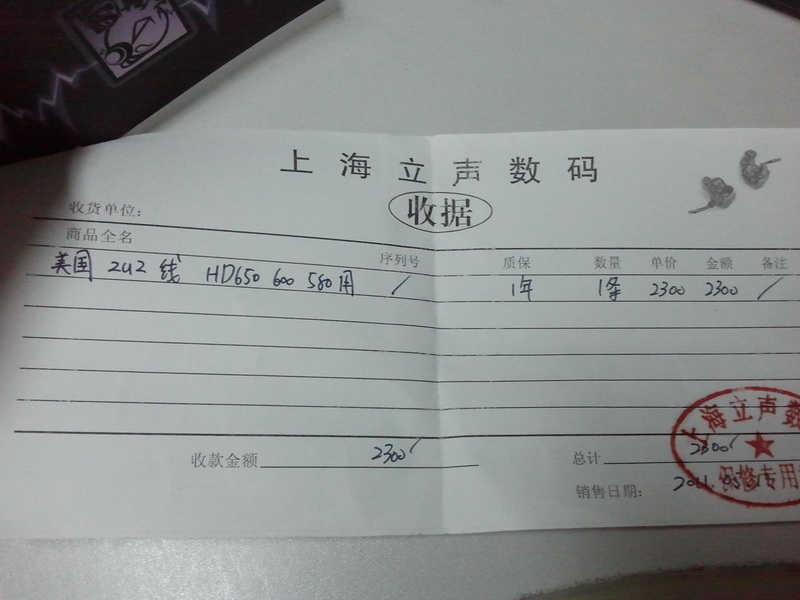 上海立声数码
收据
收货单位:
商品全名 序列号 质保 数量 单价 金额 备注
美国 zu2 线 HD650 600 580用 / 1年 1条 2300 2300 /
收款金额 2300 总计 2300
销售日期:
上海立声数
保修专用